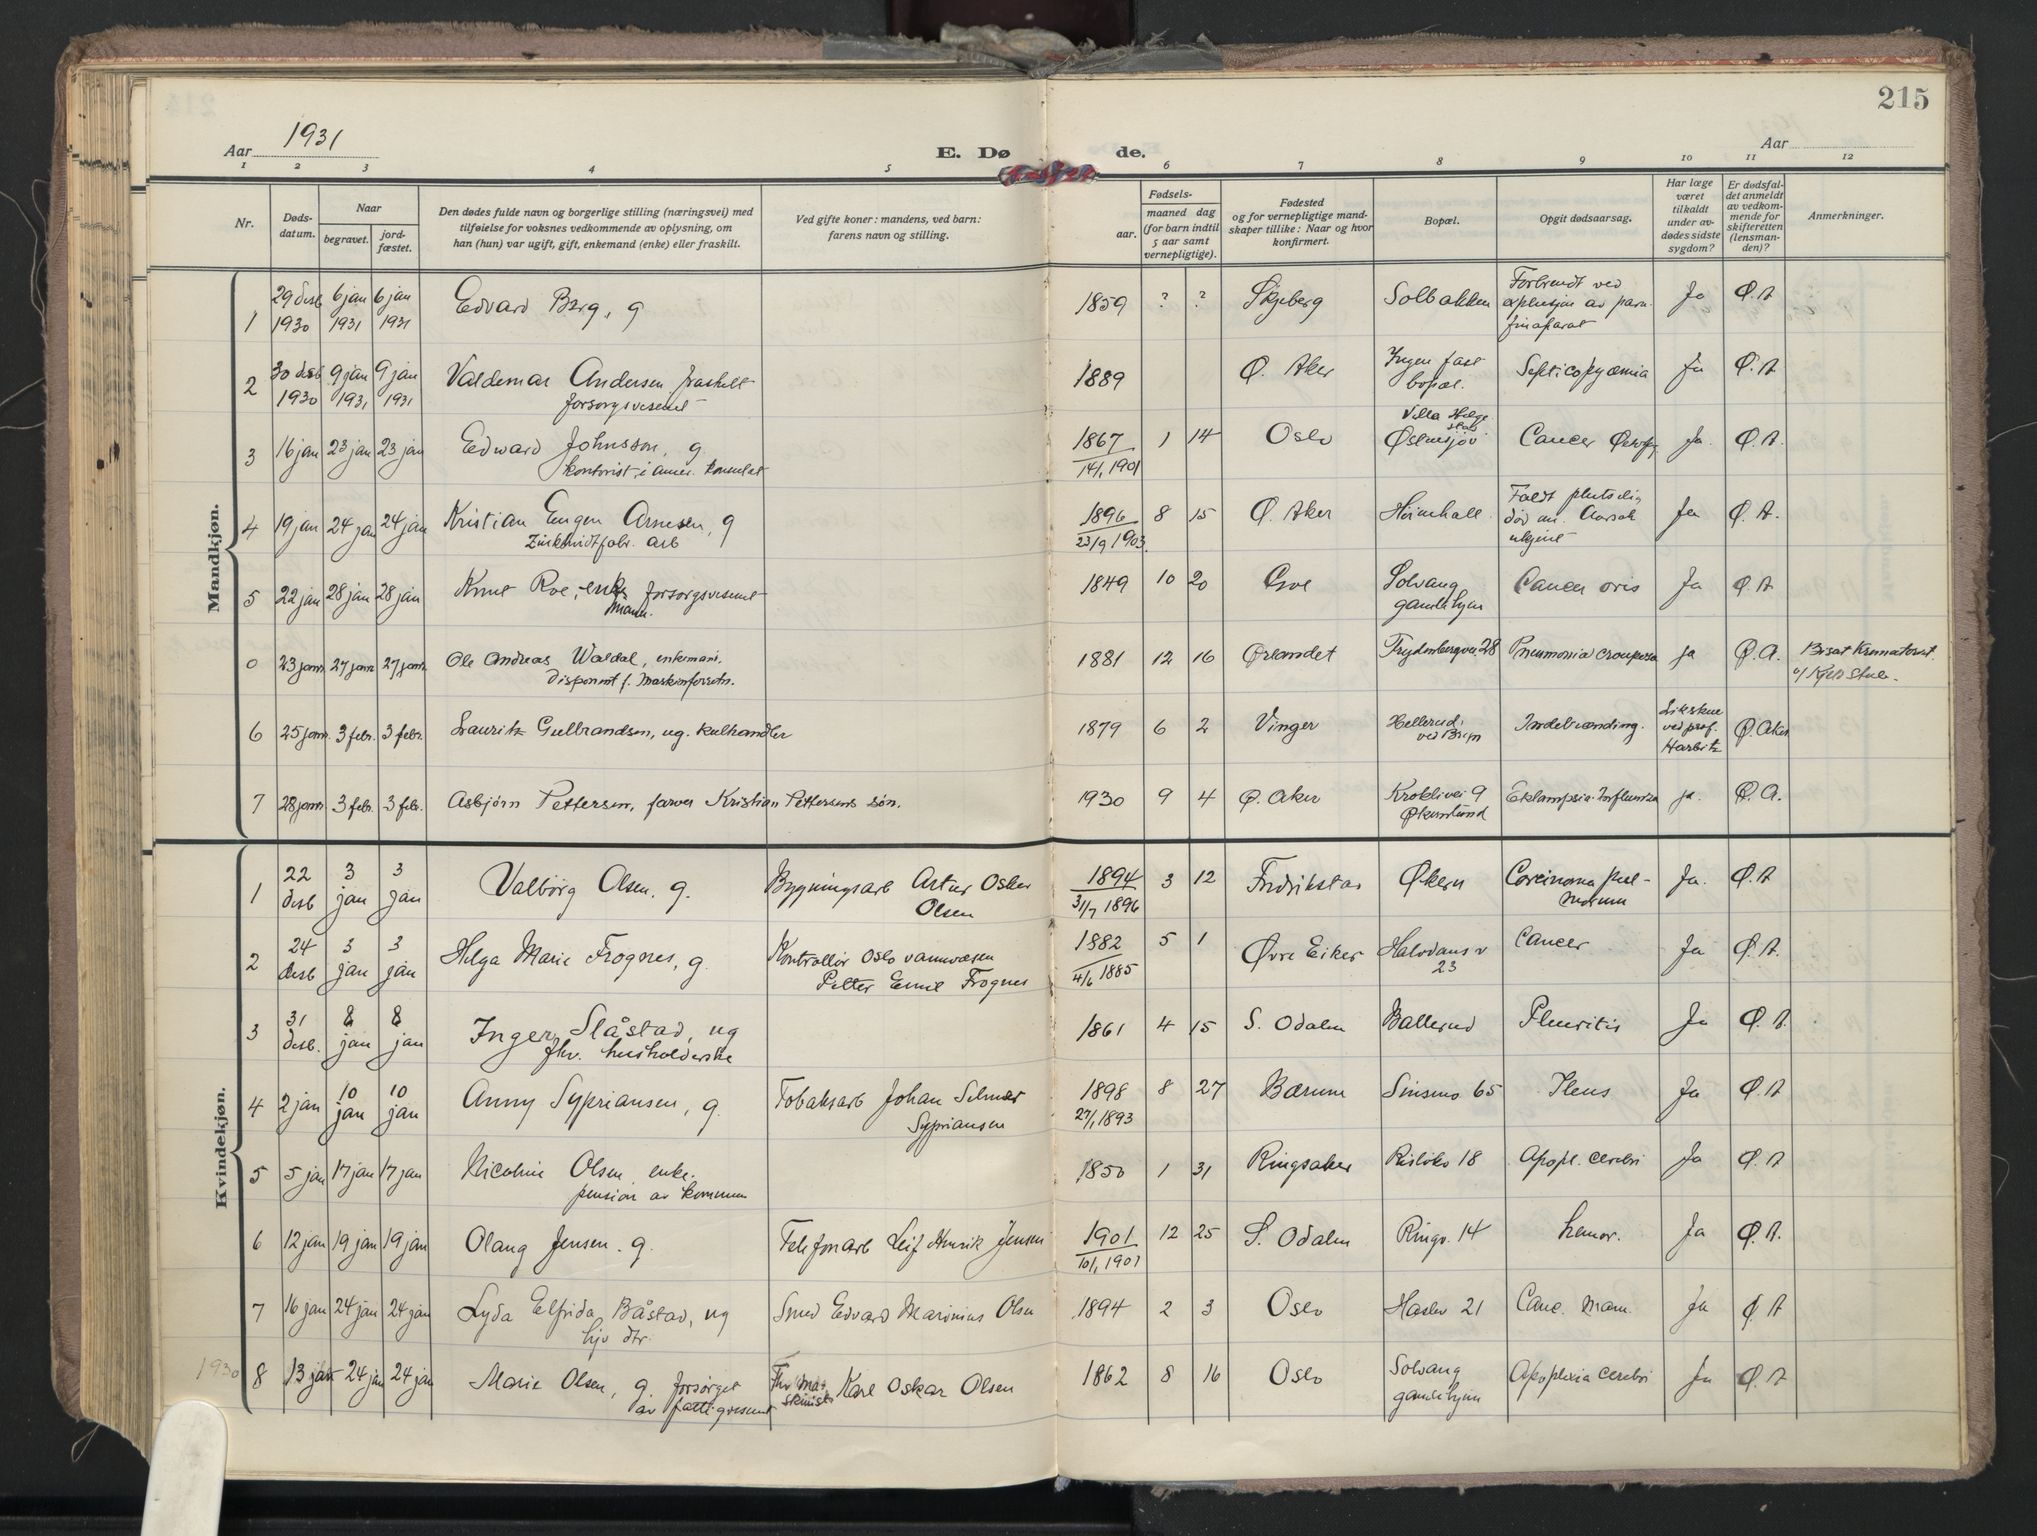 215
Aar 1931
E. Døde.
Aar
1 2 3 4 5 6 7 8 9 10 11 12
Nr.
Døds-datum.
Naar
begravet.
jord-fæstet.
Den dødes fulde navn og borgerlige stilling (næringsvei) med
tilføielse for voksnes vedkommende av oplysning, om
han (hun) var ugift, gift, enkemand (enke) eller fraskilt.
Ved gifte koner: mandens, ved barn:
farens navn og stilling.
Fødsels-
aar.
maaned dag
(for barn indtil
5 aar samt
vernepligtige).
Fødested
og for vernepligtige mand-
skaper tillike: Naar og hvor
konfirmert.
Bopæl.
Opgit dødsaarsag.
Har læge
været
tilkaldt
under av-
dødes sidste
sygdom?
Er dødsfal-
det anmeldt
av vedkom-
mende for
skifteretten
(lensman-
den)?
Anmerkninger.
Mandkjøn.
1 29 desb 1930 6 jan 1931 6 jan 1931 Edvard Berg, g 1859 ? ? Skjeberg Solbakken Forbrendt ved explosjon av parafinaparat Ja Ø. A
2 30 desb 1930 9 jan 1931 9 jan 1931 Valdemar Andersen fraskilt 1889 Ø. Aker Ingen fast bopæl. Septicopyæmia Ja Ø. A
forsorgsvesenet
3 16 jan 23 jan 23 jan Edward Johnsson, g. 1867 1 14 Oslo Villa Østensjøv Cancer Ja. Ø. A.
kontorist i amer. konsulat 14/1 1901
4 19 jan 24 jan 24 jan Kristian Eugen Arnesen, g 1896 8 15 Ø. Aker Heimhall. Faldt plutselig død om. Aarsak ukjent Ja Ø. A.
23/9 1903.
5 22 jan 28 jan 28 jan Knut Roe, enke mann. forsorgsvesenet 1849 10 20 Solvang gamlehjem Cancer oris Ja Ø A
0 23 janr. 27 janr. 27 janr. Ole Andreas Waldal, enkemann. 1881 12 16 Ørlandet Trydenbergvei 28 Pneumonia crouposa ja Ø. A. Bisat Krematoriet.
Disponent f. Maskinforretn.
6 25 janr. 3 febr. 3 febr. Lauritz Gulbrandsen, ug. kulhandler 1879 6 2 Vinger Hellerud, ved Bryn Likskue ved prof. Harbitz Ø. Aker
7 28 janr. 3 febr. 3 febr. Asbjørn Pettersen, farver Kristian Pettersens søn. 1930 9 4 Ø. Aker Kroklivei 9 Eklampsia. Influenza ja. Ø. A.
Kvindekjøn.
1 22 desb 3 jan 3 jan Valborg Olsen. g. Bygningsarb Artur Oskar Olsen 1894 3 12 Fredrikstad Økern Carcinoma pulmonum Ja. Ø. A
31/7 1896
2 24 desb 3 jan 3 jan Helga Marie Frognes, g. Kontrollør Oslo vannvæsen Petter Emil Frognes 1882 5 1 Øvre Eiker Halvdans v 23 Cancer Ja Ø. A.
4/6 1885
3 31 desb. 8 jan 8 jan Inger Slåstad, ug 1861 4 15 S. Odalen Ballerud Pleuritis Ja Ø. A.
fhv. husholderske
4 2 jan 10 jan 10 jan Anny Sypriansen, g. Tobaksarb Johan Selmer Sypriansen 1898 8 27 Bærum Sinsenv 65 Ileus Ja Ø. A
27/1 1893
5 5 jan 17 jan 17 jan Nicoline Olsen, enke. 1850 1 31 Ringsaker Risløkv 18 Apopl. cerebri Ja Ø. A
pension av kommunen
6 12 jan 19 jan 19 jan Olaug Jensen. g. Telefonarb Leif Henrik Jensen 1901 12 25 S. Odalen Ringv. 14 hemor. Ja Ø. A.
10/1 1901
7 16 jan 24 jan 24 jan Lyda Elfrida Båstad, ug Smed Edvard Marinius Olsen 1894 2 3 Oslo Haslev 21 Canc. Mam. Ja Ø. A
hjv dtr.
1930 8 13 jan 24 jan 24 jan Marie Olsen, g. forsørget Fhv maskinist Karl Oskar Olsen 1862 8 16 Oslo Solvang gamlehjem Apoplexia cerebri Ja Ø. A
av fattigvesenet